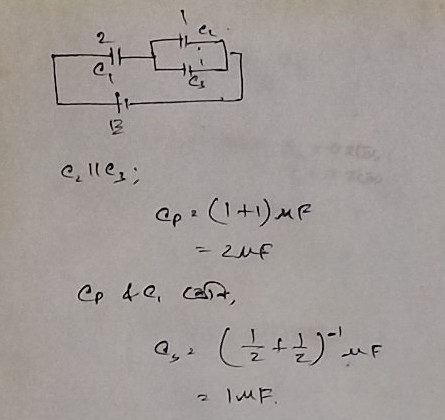 1
2 C₂
1
C₁ C₃
B
C₂ || C₃;
Cp = (1+1) μF
= 2μF
Cp & C₁ শ্রেণি,
Cs = (1/2 + 1/2)⁻¹ μF
= 1μF.